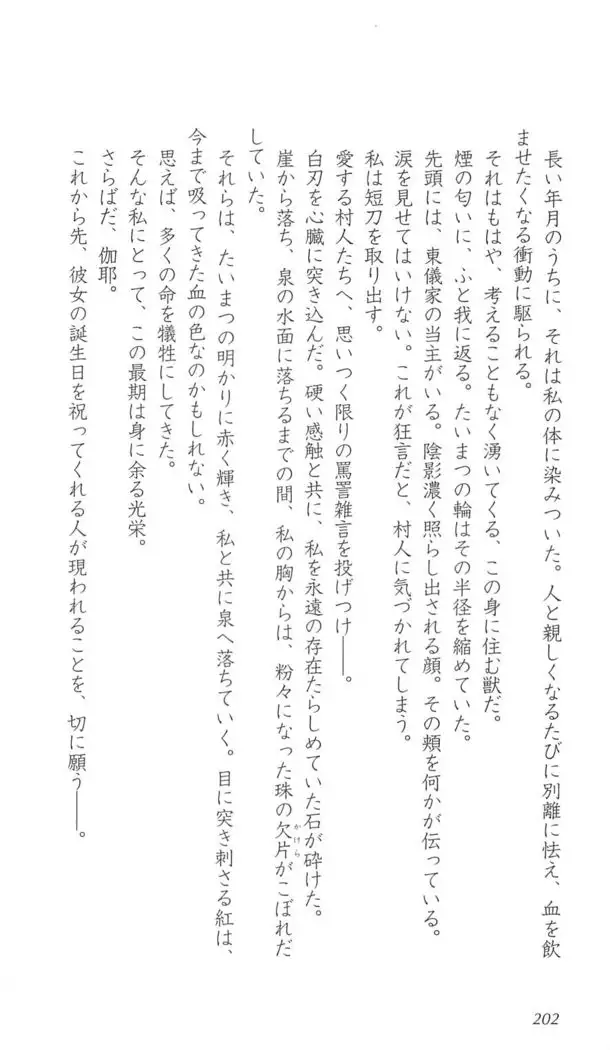 長い年月のうちに、それは私の体に染みついた。人と親しくなるたびに別離に怯え、血を飲
ませたくなる衝動に駆られる。
それはもはや、考えることもなく湧いてくる、この身に住む獣だ。
煙の匂いに、ふと我に返る。たいまつの輪はその半径を縮めていた。
先頭には、東儀家の当主がいる。陰影濃く照らし出される顔。その頬を何かが伝っている。
涙を見せてはいけない。これが狂言だと、村人に気づかれてしまう。
私は短刀を取り出す。
愛する村人たちへ、思いつく限りの罵詈雑言を投げつけ――。
白刃を心臓に突き込んだ。硬い感触と共に、私を永遠の存在たらしめていた石が砕けた。
崖から落ち、泉の水面に落ちるまでの間、私の胸からは、粉々になった珠の欠片がこぼれだ
かけら
していた。
それらは、たいまつの明かりに赤く輝き、私と共に泉へ落ちていく。目に突き刺さる紅は、
今まで吸ってきた血の色なのかもしれない。
思えば、多くの命を犠牲にしてきた。
そんな私にとって、この最期は身に余る光栄。
さらばだ、伽耶。
これから先、彼女の誕生日を祝ってくれる人が現われることを、切に願う――。
202